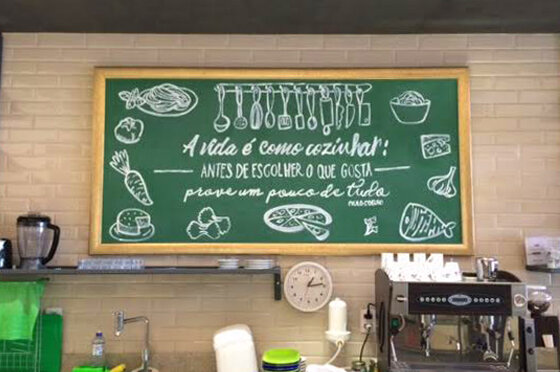 A vida é como cozinhar:
ANTES DE ESCOLHER O QUE GOSTA
prove um pouco de tudo
PAULO COELHO